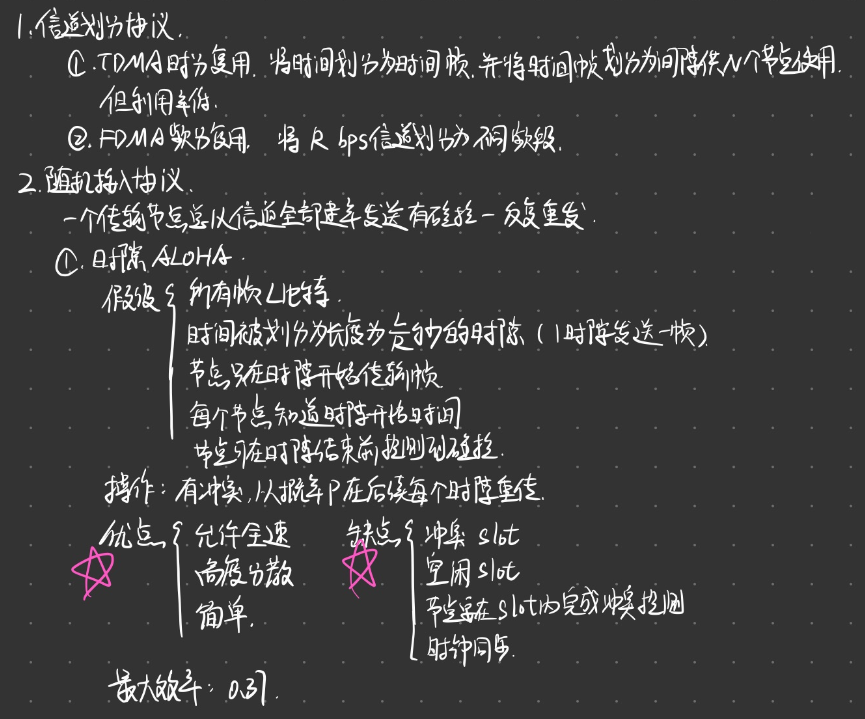 1.信道划分协议.
①.TDMA时分复用. 将时间划分为时间帧.并将时间帧划分为间隙供N个节点使用.
但利用率低.
②.FDMA频分复用. 将R bps信道划分为不同频段.
2.随机接入协议.
一个传输节点总以信道全部速率发送有碰撞-反复重发.
①.时隙ALOHA.
假设{ 所有帧L比特.
时间被划分为长度为L/R秒的时隙(1时隙发送一帧)
节点只在时隙开始传输帧
每个节点知道时隙开始时间
节点可在时隙结束前检测到碰撞.
操作:有冲突,以概率P在后续每个时隙重传.
优点{ 允许全速 缺点{ 冲突 slot
高度分散 空闲 slot
简单. 节点要在slot内完成冲突检测
时钟同步.
最大效率: 0.37.